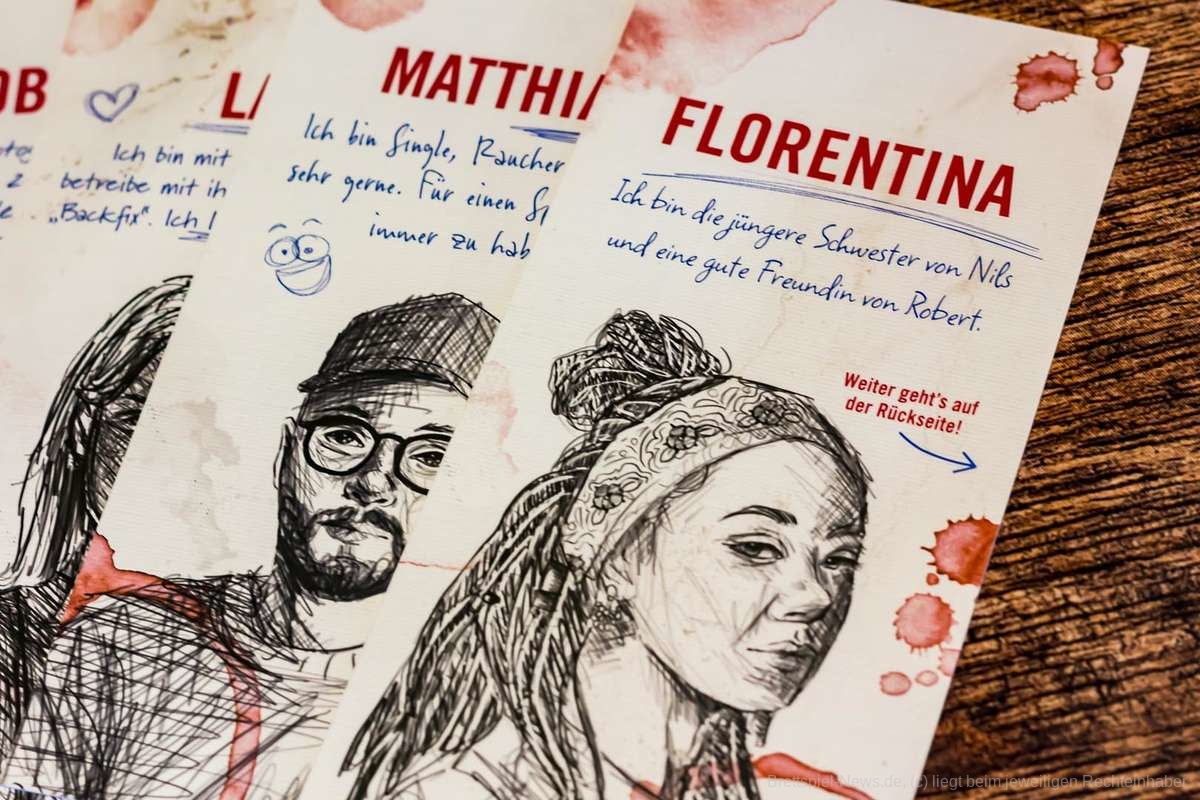 OB
LA
Ich bin mit
betreibe mit ih
„Backfix“. Ich l
MATTHIA
Ich bin Single, Raucher
sehr gerne. Für einen Sp
immer zu hab
FLORENTINA
Ich bin die jüngere Schwester von Nils
und eine gute Freundin von Robert.
Weiter geht's auf
der Rückseite!
Brettspiel-News.de, (c) liegt beim jeweiligen Rechteinhaber